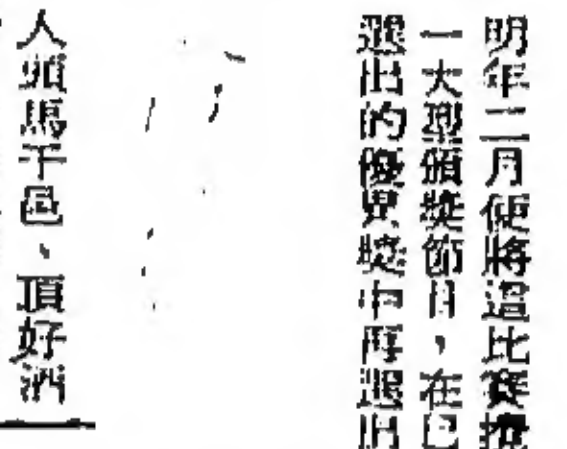 明年二月便將這比賽擴
一大型頒獎節目，在已
選出的優異獎中再選出
人頭馬干邑、頂好酒